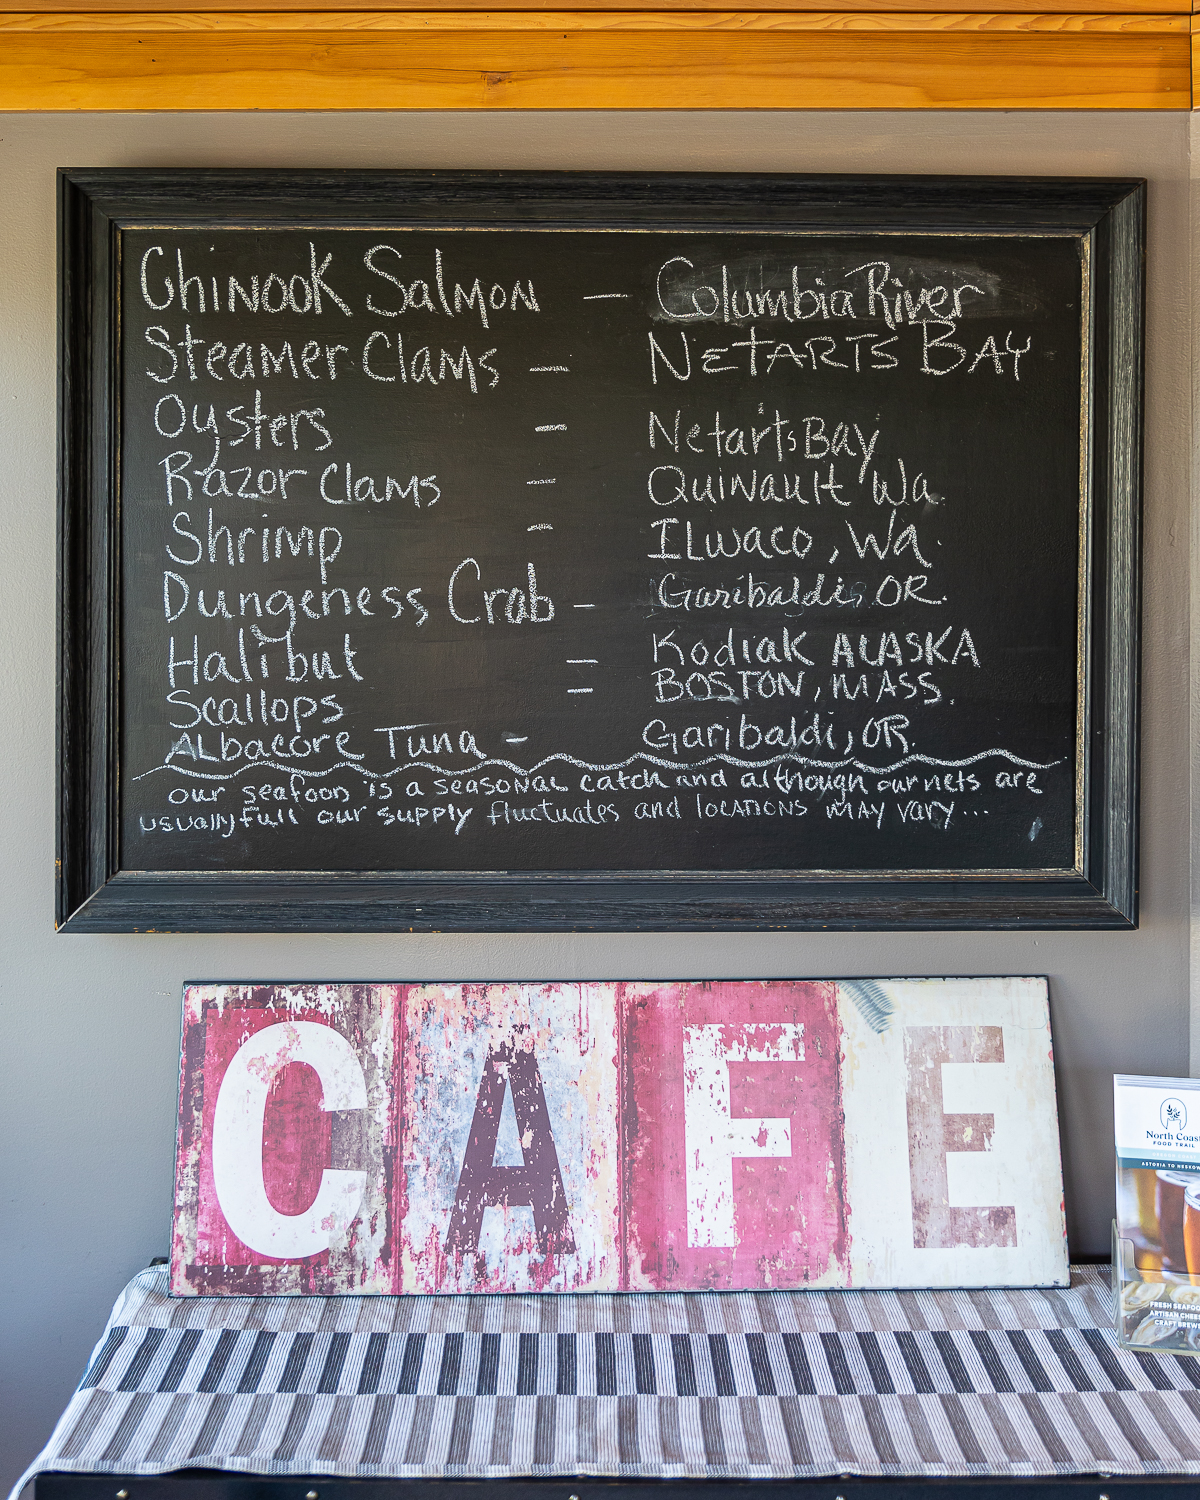 Chinook Salmon — Columbia River
Steamer Clams — Netarts Bay
Oysters — Netarts Bay
Razor Clams — Quinault Wa.
Shrimp - Ilwaco, Wa.
Dungeness Crab - Garibaldi, OR.
Halibut — Kodiak ALASKA
Scallops - BOSTON, MASS.
Albacore Tuna - Garibaldi, OR.
our seafood is a seasonal catch and although our nets are
usually full our supply fluctuates and locations may vary...
CAFE
North Coast
FOOD TRAIL
ASTORIA TO NESKOW
FRESH SEAFOO
ARTISAN CHEES
CRAFT BREWE